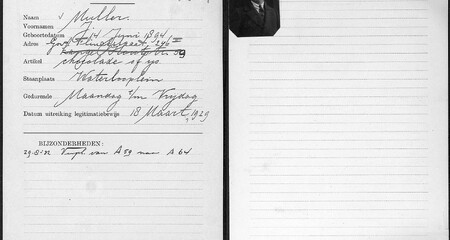 Naam v Muller.
Voornamen J.
Geboortedatum 14 Juni 1894
Adres Gov.
Artikel chocolade of ijs
Staanplaats Waterlooplein
Gedurende Maandag t/m Vrijdag
Datum uitreiking legitimatiebewijs 18 Maart 1929
BIJZONDERHEDEN:
29-8-'32 Verpl van A 59 naar A 64